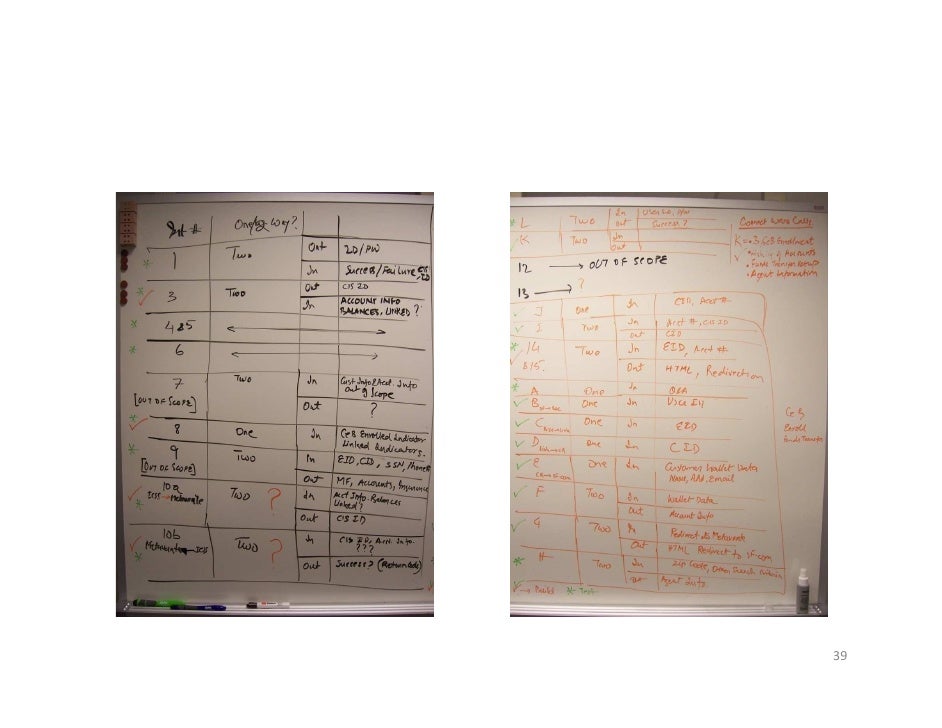 One/Two Way?
1 Two Out ID/PW
In Success/Failure, CIS ID
3 Two Out CIS ID
In ACCOUNT INFO
BALANCES, LINKED?
4 & 5
6
7 Two In Cust Info & Acct. Info
[OUT OF SCOPE] out of Scope
Out ?
8 One In CeB Enrolled Indicator
Linked Indicators.
9 Two In EID, CID, SSN,
[OUT OF SCOPE] Out MF, Accounts, Insurance
10a Two ? In Acct Info. Balances
Linked?
Out CIS ID
10b Two ? In CIS ID, Acct. Info.
???
Out Success? (Return Code)
L Two In User ID, PW
Out Success?
K Two In
Out
Connect Works Calls
K = • CeB Enrollment
• Accounts
• Funds Transfer
• Agent Information
12 → OUT OF SCOPE
13 → ?
J One In EID, Acct #
I Two In Acct #, CIS ID
Out CID
14 Two In EID, Acct #
&15. Out HTML, Redirection
A One In Q&A
B One In User ID
C One In EID
D One In CID
E One In Customer Wallet Data
Name, Add, Email
F Two In Wallet Data
Out Account Info
G Two In Redirect to Metavante
Out HTML Redirect to SF.com
H Two In Zip Code, Other Search Criteria
Out Agent Info
CeB
Enroll
Funds Transfer
→ Build * Test
39